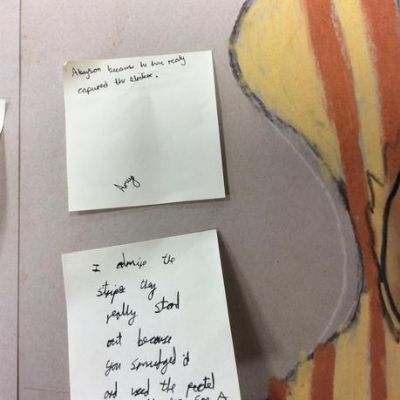 because he has really
captured the
I admire the
stripes they
really stand
out because
you smudged it
and used the pastel